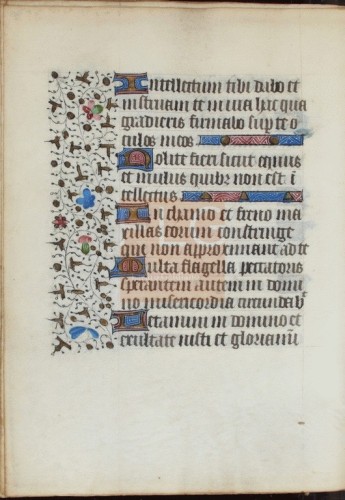 Intellectum tibi dabo et
instruam te in via hac qua
gradieris firmabo sup te o
culos meos
Nolite fieri sicut equus
et mulus quibz non est i
tellectus
In chamo et freno ma
xillas eorum constringe
que non approximant ad te
Multa flagella peccatoris
sperantem autem in domi
no misericordia circundabt
Letamini in domino et
exultate iusti et gloriamini